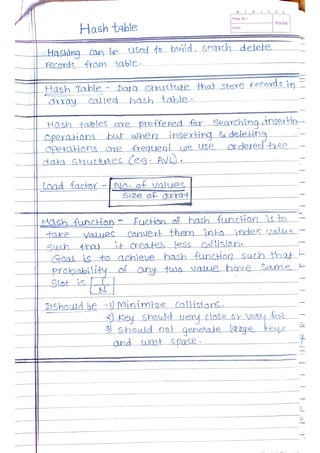 M T W T F S S
Page No.:
Date:
YOUVA
Hash table
Hashing can be used to build, search delete
records from table.
Hash Table - Data structure that store records in
array called hash table.
Hash tables are preffered for searching, insertin
operations but when inserting & deleting
operations are frequent we use ordered tree
data structures (eg. AVL).
Load factor - No. of values
size of array
Hash function - Fuction of hash function is to
take values convert them into index value
such that it creates less collision.
Goal is to achieve hash function such that
probability of any two value have same
slot is 1
N
It should be - 1) Minimize collisions.
2) Key should very close or very far
3) should not generate large keys
and wast space.